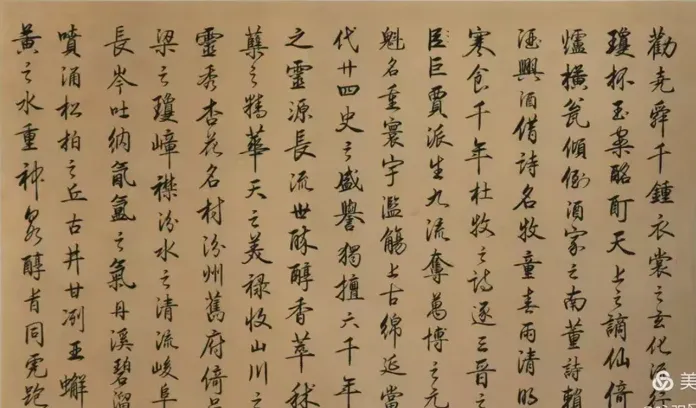 勸堯舜千鍾衣裳之玄化流行
瓊杯玉案酩酊天上之謫仙倚
爐橫瓮傾倒酒家之南董詩賴
酒興酒借詩名牧童春雨清明
寒食千年杜牧之詩逐三晉之
臣巨賈派生九流奪萬博之元
魁名重寰宇濫觴上古綿延當
代廿四史之盛譽獨擅六千年
之靈源長流世酥醇香萃秫
蘖之犧華天之美祿收山川之
靈秀杏花名村汾州舊府倚呂
梁之瓊嶂襟汾水之清流峻阜
長岑吐納氤氳之氣丹溪碧溜
噴涌松柏之丘古井甘冽亞蠏
黃之水重神泉醇旨同兜跑
美